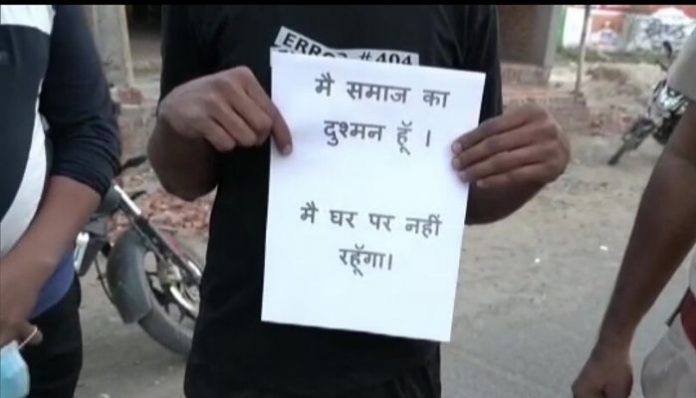 ERROR #404
मै समाज का
दुश्मन हूँ ।
मै घर पर नहीं
रहूँगा।